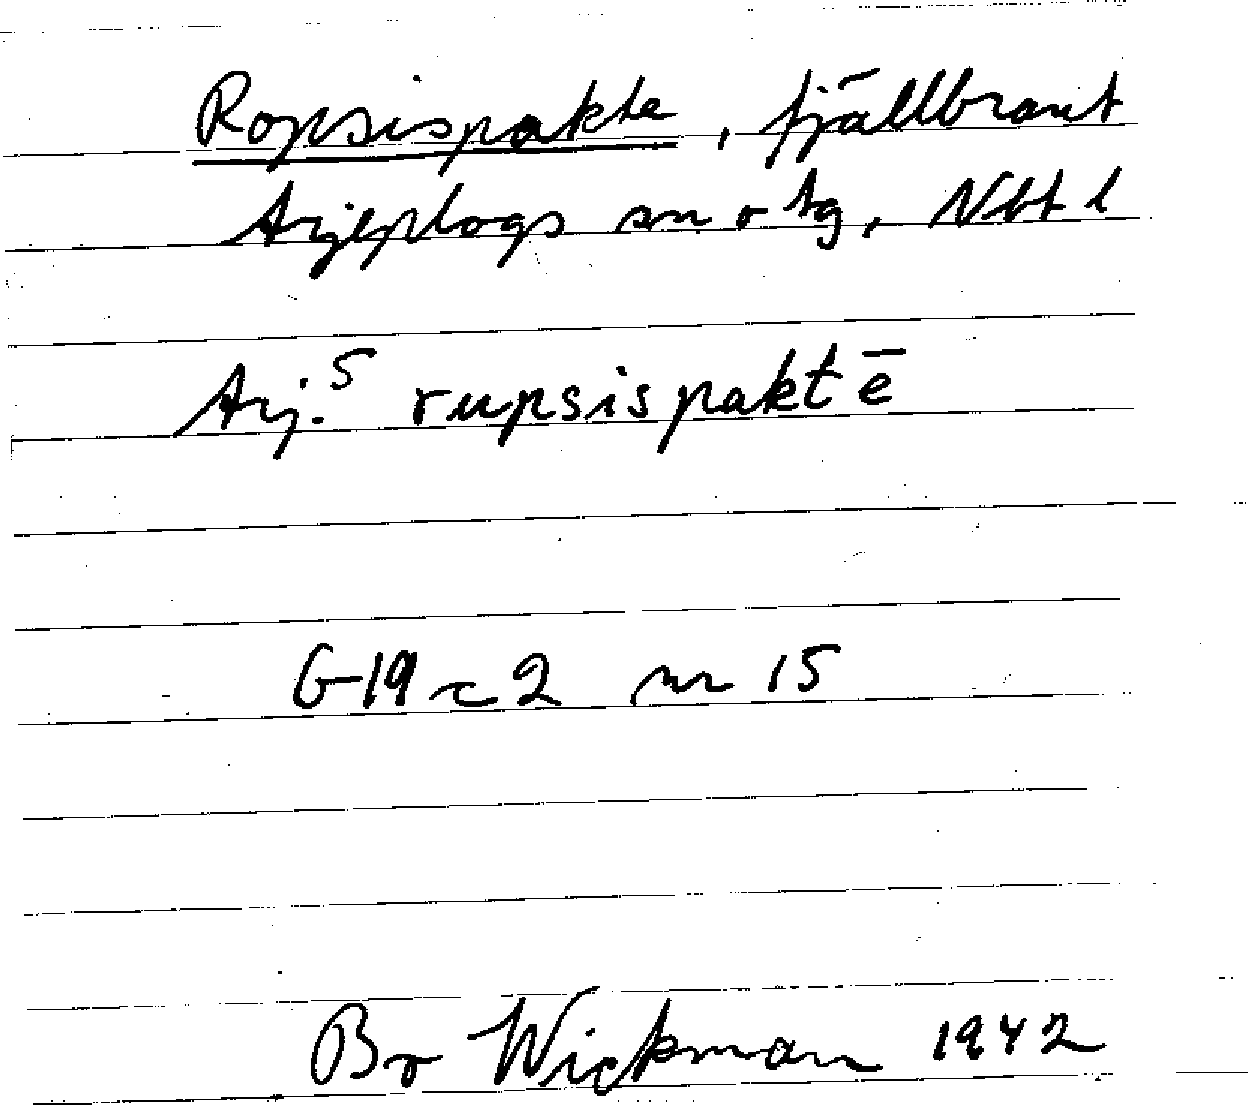 Ropsispakte, fjällbrant
Arjeplogs sn o tg, Nbt l
Arj.S rupsispaktē
G19c2 nr 15
Bo Wickman 1942